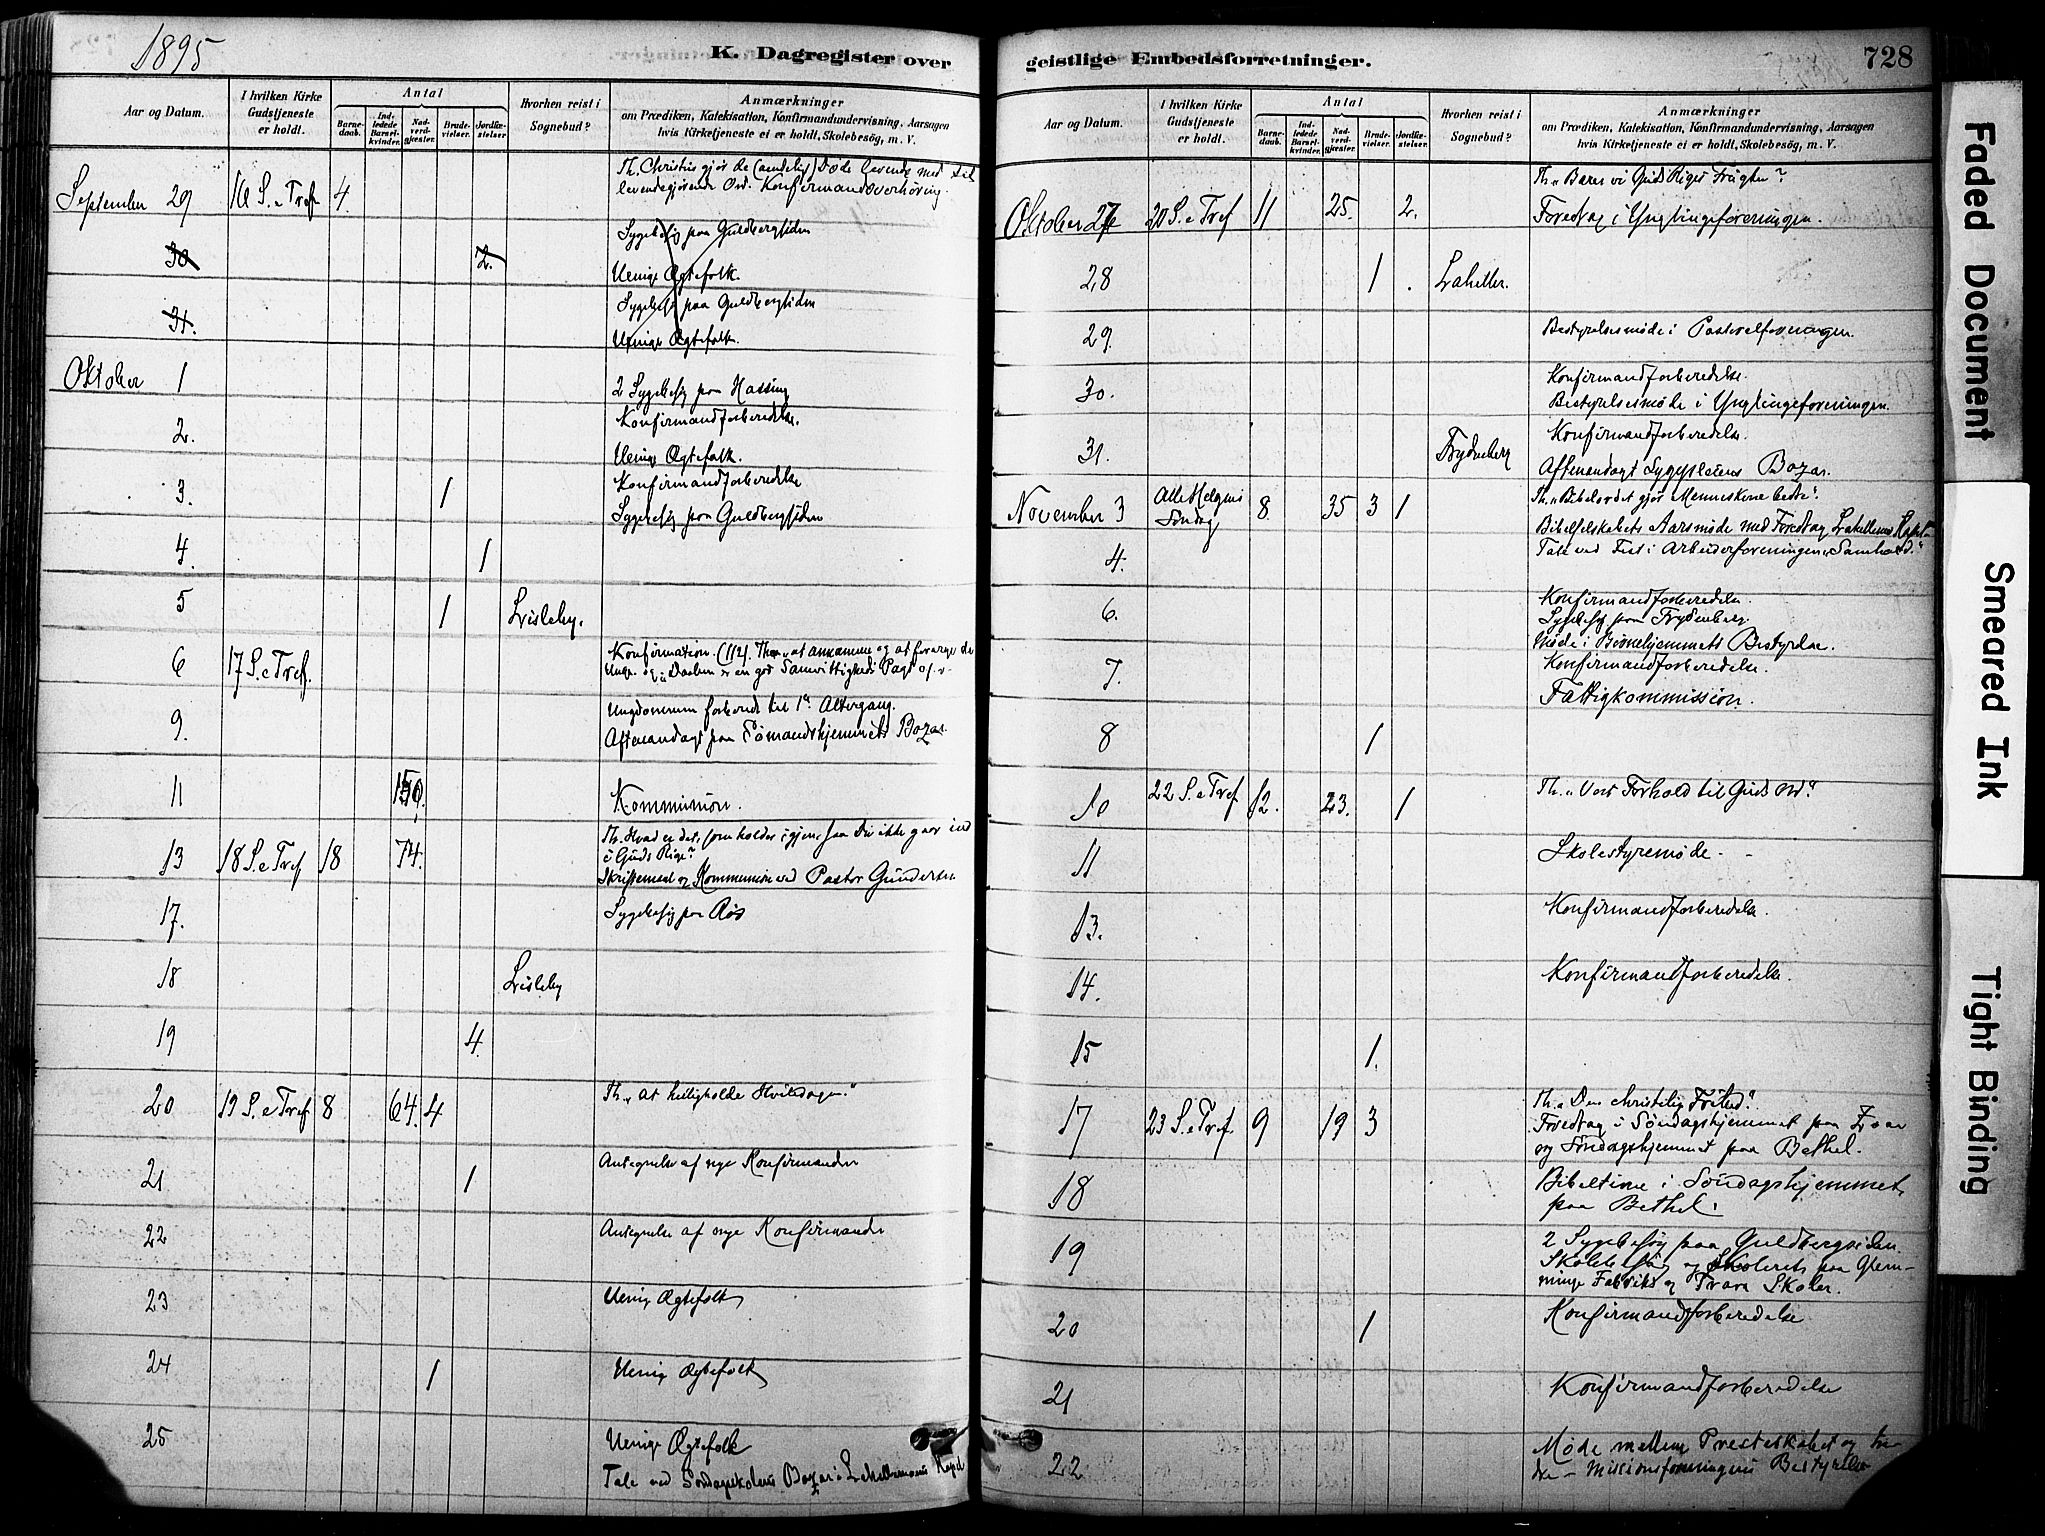 1895
K. Dagregister over
Aar og Datum.
I hvilken Kirke Gudstjeneste er holdt.
Antal
Barne-daab.
Ind-ledede Barsel-kvinder.
Nad-verd-gjæster.
Brude-vielser.
Jordfæ-stelser
Hvorhen reist i Sognebud?
Anmærkninger
om Prædiken, Katekisation, Konfirmandundervisning, Aarsagen
hvis Kirketjeneste ei er holdt, Skolebesög, m. V.
Th. Christus gjør de (aandelig) Døde levende med sit
September 29 16 S. e Tref 4 levendegjørende Ord. Konfirmandoverhøring.
Sygebesøg paa Guldbergsiden
30 2.
Uenige Ægtefolk.
Sygebesøg paa Guldbergsiden
31.
Uenige Ægtefolk.
Oktober 1 2 Sygebesøg paa Hassing
Konfirmandforberedelse.
2.
Uenige Ægtefolk.
3. 1 Konfirmandforberedelse
Sygebesøg paa Guldbergsiden
4. 1
5 1 Lisleby.
6 17 S. e Tref. Konfirmation. (112). Them „at annamme og at forarge de
Unge og „Daaben er en god Samvittigheds Pagt
9. Ungdommen forbered. til 1ste Altergang.
Aftenandagt paa Sømandshjemmets Bazar.
11 150. Kommunion.
Th. Hvad er det, som holder igjen, saa Du ikke gaar ind
13 18 S. e Tref 18 74. i Guds Rige?
Skriftemaal og Kommunion ved Pastor Gundersen
17. Sygebesøg paa Røs
18 Lisleby
19 4.
20 19 S. e Tref 8 64. 4 Th. „At helligholde Hviledagen."
21 1 Antegnelse af nye Konfirmander
22 Antegnelse af nye Konfirmander
23 Uenige Ægtefolk
24 1 Uenige Ægtefolk
25 Uenige Ægtefolk
Tale ved Søndagsskolens Bazar i Kapel
geistlige Embedsforretninger.
728
Aar og Datum.
I hvilken Kirke Gudstjeneste er holdt.
Antal
Barne-daab.
Ind-ledede Barsel-kvinder.
Nad-verd-gjæster.
Brude-vielser.
Jordfæ-stelser.
Hvorhen reist i Sognebud?
Anmærkninger
om Prædiken, Katekisation, Konfirmandundervisning, Aarsagen
hvis Kirketjeneste ei er holdt, Skolebesög, m. V.
Th. „Bærer vi Guds Riges Frugter"?
Oktober 27 20 S. e Tref 11 25. 2. Foredrag i Ynglingeforeningen.
28 1 Lahelle.
29 Bestyrelsesmøde i Pastoralforeningen.
Konfirmandforberedelse.
30. Bestyrelsesmøde i Ynglingeforeningen.
31. Frydenberg Konfirmandforberedelse.
Aftenandagt Sygepleiens Bazar.
November 3 Alle Helgens Søndag 8 35 3 1 Th. „Bibelordet gjør Menneskene bedre".
Bibelselskabets Aarsmøde med Foredrag Lahellens Kapel
4. Tale ved Fest i Arbeiderforeningen „Samhold."
Konfirmandforberedelse.
6. Sygebesøg paa Frydenberg.
Møde i Børnehjemmets Bestyrelse.
7. Konfirmandforberedelse.
Fattigkommission.
8 1
10 22 S. e Tref 12. 23. 1 Th. „Vort Forhold til Guds Ord."
11 Skolestyremøde. -
13. Konfirmandforberedelse.
14. Konfirmandforberedelse.
15 1.
Th. „Den christelige Frihed".
17 23 S. e Tref. 9 19 3 Foredrag i Søndagshjemmet paa Zoar
og Søndagshjemmet paa Bethel.
18 Bibeltime i Søndagshjemmet
paa Bethel.
19 2 Sygebesøg paa Guldbergsiden.
Skolebesøg og Skoleret, paa Glem-
minge Fabriks og Trara Skoler.
20 1 Konfirmandforberedelse
21 Konfirmandforberedelse
22 Møde mellem Presteskabet og In-
dre-Missionsforeningens Bestyrelse
Faded Document
Smeared Ink
Tight Binding